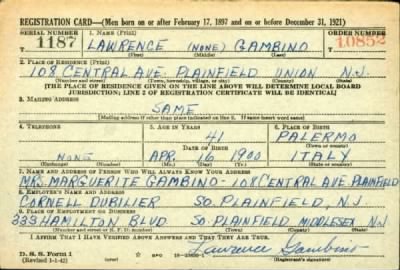 REGISTRATION CARD—(Men born on or after February 17, 1897 and on or before December 31, 1921)
SERIAL NUMBER 1. NAME (Print) ORDER NUMBER
1187 LAWRENCE (NONE) GAMBINO 10852
(First) (Middle) (Last)
2. PLACE OF RESIDENCE (Print)
108 CENTRAL AVE. PLAINFIELD UNION N.J.
(Number and street) (Town, township, village, or city) (County) (State)
[THE PLACE OF RESIDENCE GIVEN ON THE LINE ABOVE WILL DETERMINE LOCAL BOARD
JURISDICTION; LINE 2 OF REGISTRATION CERTIFICATE WILL BE IDENTICAL]
3. MAILING ADDRESS
SAME
[Mailing address if other than place indicated on line 2. If same insert word same]
4. TELEPHONE 5. AGE IN YEARS 6. PLACE OF BIRTH
41 PALERMO
DATE OF BIRTH (Town or county)
NONE APR. 16 1900 ITALY
(Exchange) (Number) (Mo.) (Day) (Yr.) (State or country)
7. NAME AND ADDRESS OF PERSON WHO WILL ALWAYS KNOW YOUR ADDRESS
MRS. MARGUERITE GAMBINO - 108 CENTRAL AVE. PLAINFIELD
8. EMPLOYER'S NAME AND ADDRESS
CORNELL DUBILIER SO. PLAINFIELD, N.J.
9. PLACE OF EMPLOYMENT OR BUSINESS
333 HAMILTON BLVD SO. PLAINFIELD MIDDLESEX N.J
(Number and street or R. F. D. number) (Town) (County) (State)
I AFFIRM THAT I HAVE VERIFIED ABOVE ANSWERS AND THAT THEY ARE TRUE.
D. S. S. Form 1
(Revised 1-1-42) GPO Lawrence Gambino